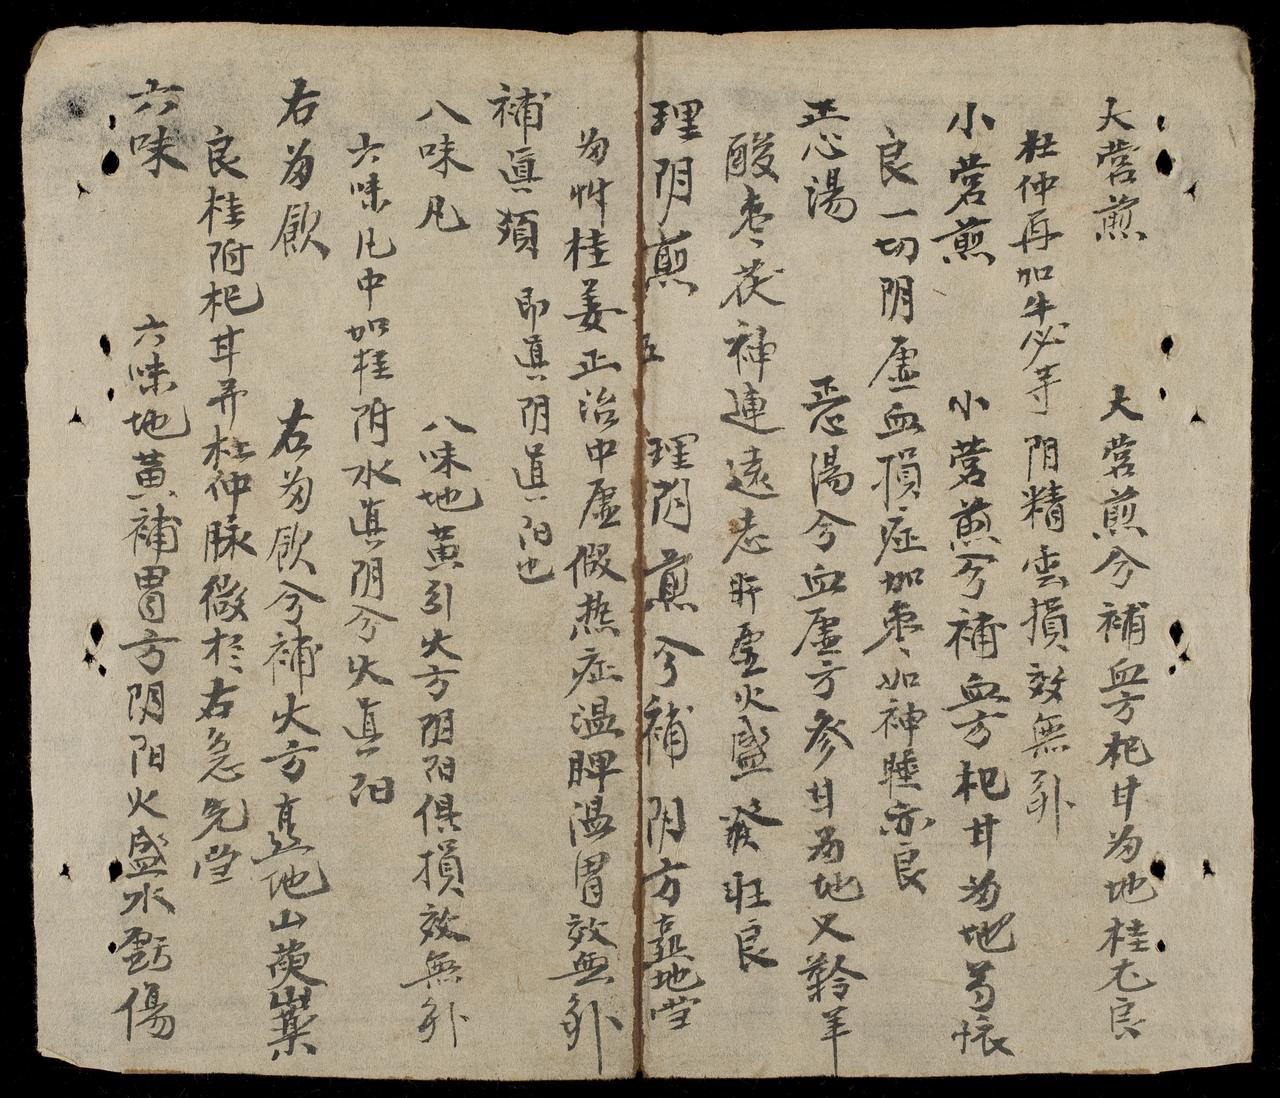 大营煎　大营煎兮補血方杞甘为地桂尤良
杜仲再加牛必等阴精雲損效無卧
小营煎　小营煎兮補血方杞甘为地芎怀
良一切阴虚血損症加枣如神睡亦良
正心湯　湯兮血虚方参甘为地又羚羊
酸枣茯神連遠志肝虚火盛發狂良
理阴煎　五　理阴煎兮補阴方地当
为艸桂姜正治中虚假热症温脾温胃效無卧
補真類　即真阴真阳也
八味凡　八味地黄引火方阴阳俱損效無卧
六味凡中加桂附水真阴兮火真阳
右为飲　右为飲兮補火方地山萸山薬
良桂附杞甘并杜仲脉微於右急先当
六味　六味地黄補胃方阴阳火盛水虧傷